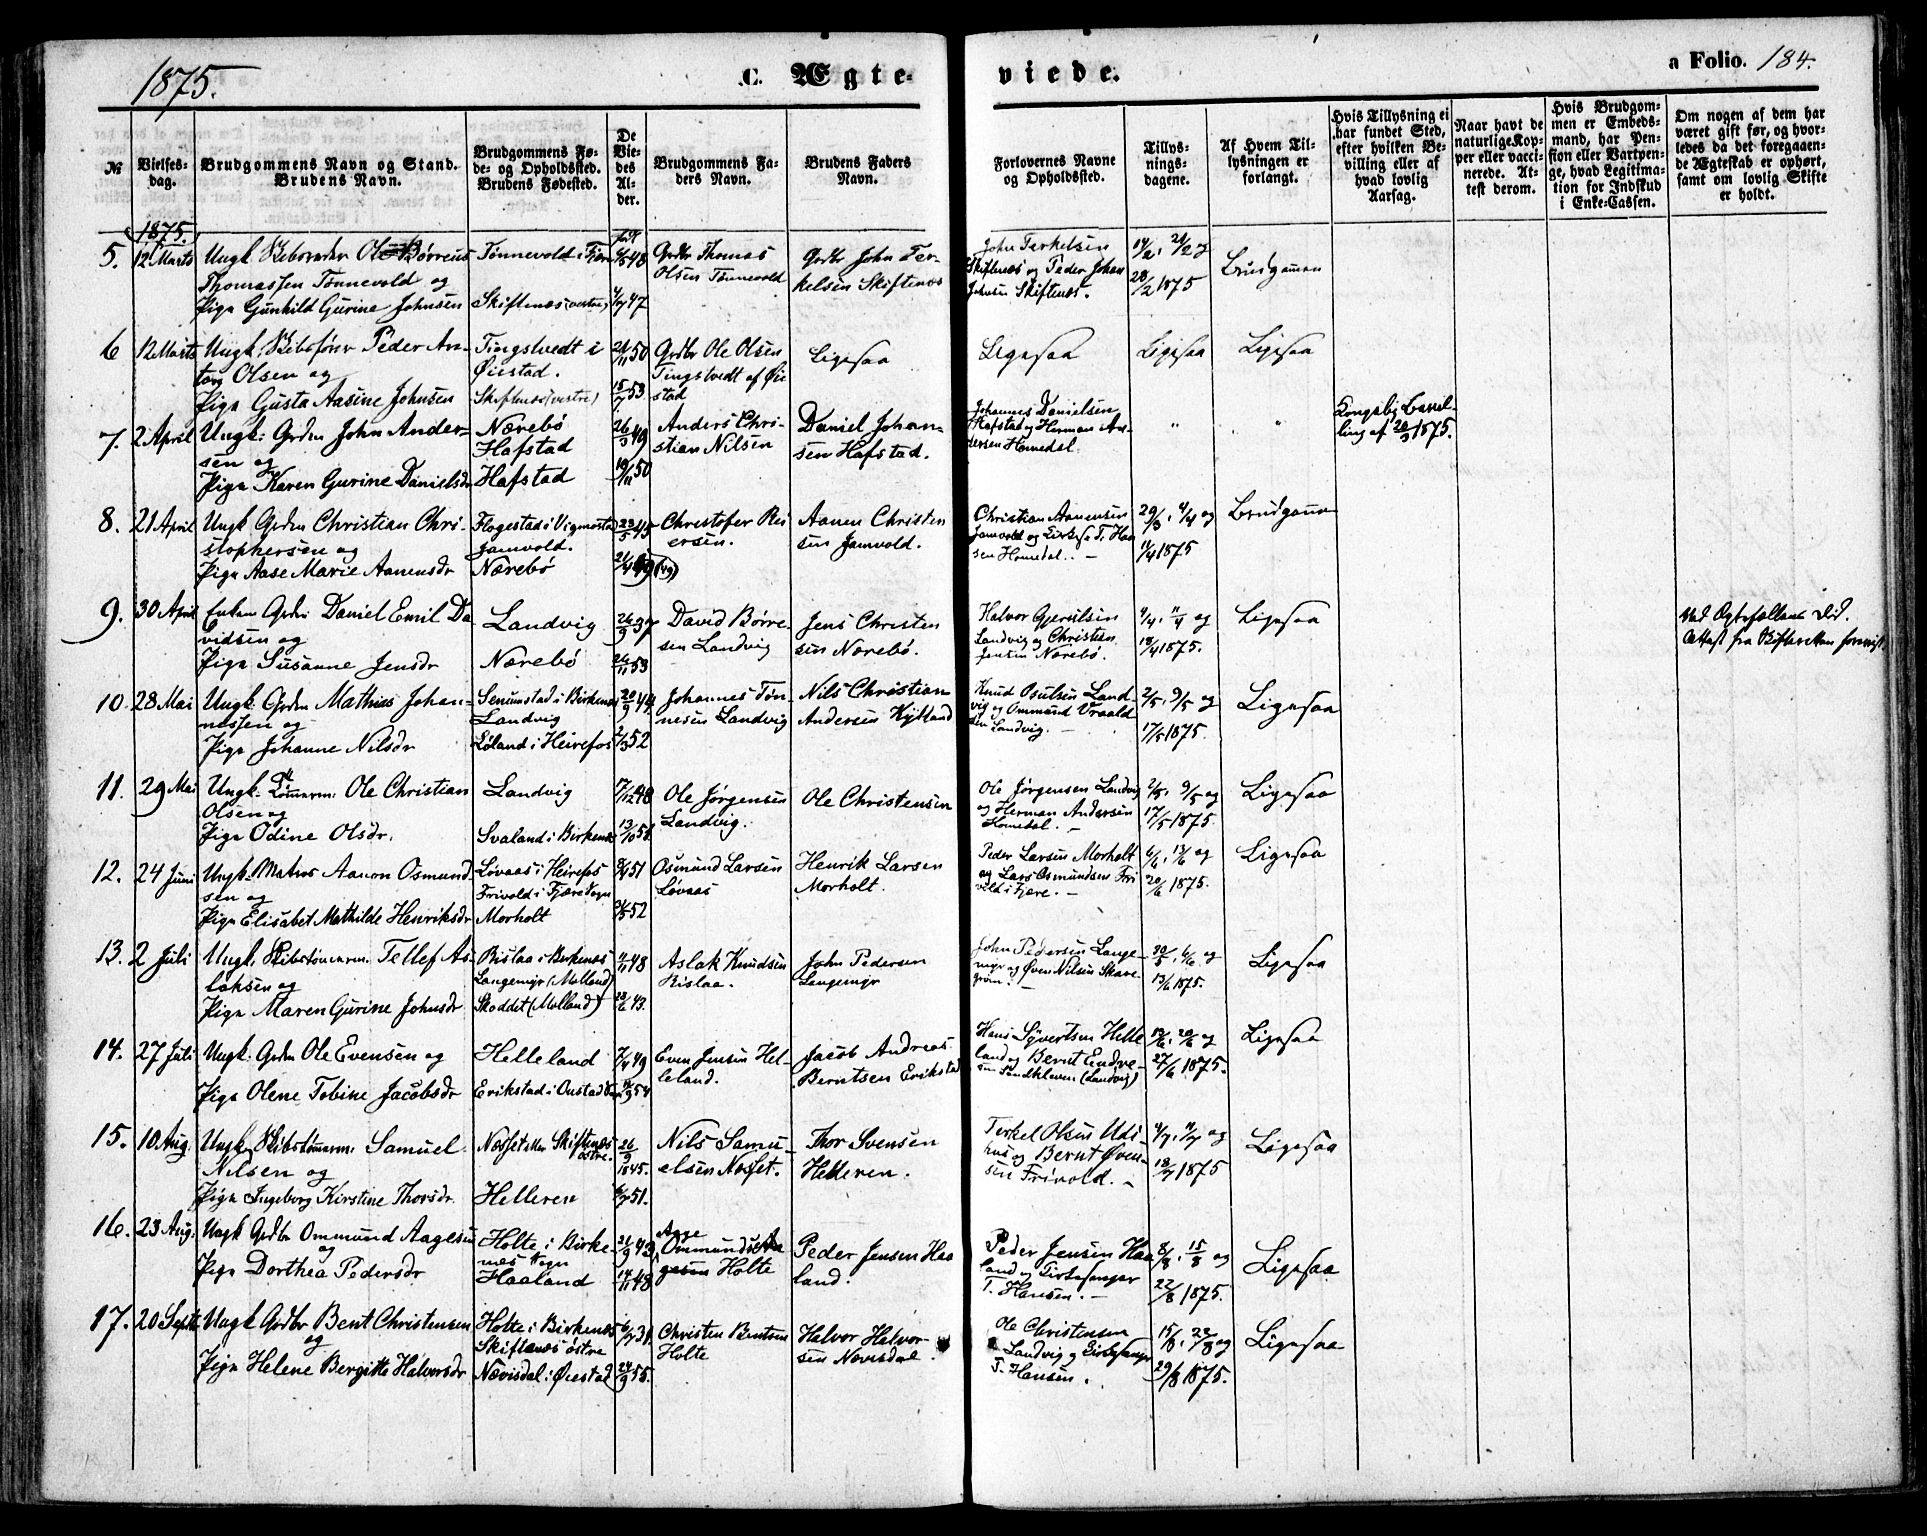 1875.
C. Ægte-
viede.
a Folio. 184.
№
Vielses-
dag.
Brudgommens Navn og Stand.
Brudens Navn.
Brudgommens Fø-
de- og Opholdssted.
Brudens Fødested.
De
Vie-
des
Al-
der.
Brudgommens Fa-
ders Navn.
Brudens Faders
Navn.
Forlovernes Navne
og Opholdssted.
Tillys-
nings-
dagene.
Af Hvem Til-
lysningen er
forlangt.
Hvis Tillysning ei
har fundet Sted,
efter hvilken Be-
villing eller af
hvad lovlig
Aarsag.
Naar havt de
naturlige Kop-
per eller vacci-
nerede. At-
test derom.
Hvis Brudgom-
men er Embeds-
mand, har Pen-
sion eller Vartpen-
ge, hvad Legitima-
tion for Indskud
i Enke-Cassen.
Om nogen af dem har
været gift før, og hvor-
ledes da det foregaaen-
de Ægteskab er ophørt,
samt om lovlig Skifte
er holdt.
1875.
5. 12 Marts
Ungk. Ole Børreus
Thomassen Tønnevold og
Pige Gunhild Gurine Johnsen
Tønnevold i Fjære
Skiftenæs (vestre)
48
47
Grdbr Thomas
Olsen Tønnevold
Grdbr John Ter-
kelsen Skiftenæs
John Terkelsen
Skiftenæs og Peder Johan
Johnsen Skiftenæs.
14/2, 21/2 og
28/2 1875
Brudgommen
6 12 Marts
Ungk. Skibsfører Peder An-
ton Olsen og
Pige Gusta Aasine Johnsen
Tingstvedt i
Øiestad.
Skiftenæs (vestre)
21/11 50
15/7 53
Grdbr Ole Olsen
Tingstvedt af Øie
stad
Ligesaa
Ligesaa
Ligesaa
Ligesaa
7. 2 April
Ungk: Grdm John Ander-
sen og
Pige Karen Gurine Danielsdr
Nærebø
Hafstad
Hafstad
26/3 49
19/11 50
Anders Chri-
stian Nilsen
Daniel Johan-
sen Hafstad.
Johannes Danielsen
Hafstad og Herman An-
dersen Homedal.
"
"
Kongelig Bevil-
ling af 20/3 1875.
8. 21 April
Ungk Grdm Christian Chri-
stophersen og
Pige Aase Marie Aanensdr
Flogestad i Vigmostad
Jamvold.
Nærebø
23/5 45
21/4 49 (49)
Christofer Rei
ersen.
Aanen Christen
sen Jamvold.
Christian Aanensen
Jamvold og Kirkes. T. Han
sen Homedal. -
29/3, 4/4 og
11/4 1875
Brudgomm
9. 30 April
Enkem Grdm Daniel Emil Da
vidsen og
Pige Susanne Jensdr
Landvig
Nærebø
26/9 37
26/11 53
David Børre-
sen Landvig
Jens Christen
sen Nærebø.
Halvor Gjerulsen
Landvig og Christen
Jensen Nærebø.
4/4, 11/4 og
18/4 1875.
Ligesaa
Ved Ægtefællens Død.
Attest fra Skifteretten forevist
10. 28 Mai
Ungk: Grdm Mathias Johan-
nessen og
Pige Johanne Nilsdr
Senumstad i Birkenæs
Landvig
Løland i Heirefos
20/9 44
2/3 52
Johannes Tøn-
nesen Landvig
Nils Christian
Andersen
Knud Osulsen Land
vig og Ommund Vraald
sen Landvig.
2/5, 9/5 og
17/5 1875.
Ligesaa
11. 29 Mai
Ungk: Tømmerm: Ole Christian
Olsen og
Pige Odine Olsdr.
Landvig
Svaland i Birkenæs
7/12 48
13/10 55.
Ole Jørgensen
Landvig.
Ole Christensen
Ole Jørgensen Landvig
og Herman Andersen
Homedal. -
2/5, 9/5 og
17/5 1875.
Ligesaa
12. 24 Juni
Ungk. Matros Aanon Osmund
sen og
Pige Elisabet Mathilde Henriksdr
Løvaas i Heirefos
Frivold i Fjære Sogn
Morholt
51
52
Osmund Larsen
Løvaas
Henrik Larsen
Morholt.
Peder Larsen Morholt
og Lars Osmundsen Fri
vold i Fjære. -
6/6, 13/6 og
20/6 1875.
Ligesaa
13. 2 Juli
Ungk. Skibstømmerm. Tellef As-
laksen og
Pige Maren Gurine Johnsdr
Rislaa i Birkenæs
Langemyr (Molland)
Skoddet (Molland)
48
23/6 43.
Aslak Knudsen
Rislaa.
John Pedersen
Langemyr
John Pedersen Lange-
myr og Øven Nilsen Skare-
grøm. -
30/5, 6/6 og
13/6 1875.
Ligesaa
14. 27 Juli
Ungk: Grdm Ole Evensen og
Pige Olene Tobine Jacobsdr
Helleland
Erikstad i
7/4 49
54
Even Jensen Hel-
leland.
Jacob Andreas
Berntsen Erikstad
Hans Syvertsen Helle
land og Bernt Endre-
sen Sandkleven (Landvig)
13/6, 20/6 og
27/6 1875.
Ligesaa
15. 10 Aug.
Ungk Skibstømmerm. Samuel
Nilsen og
Pige Ingeborg Kirstine Thorsdr.
Næsset Skiftenæs
østre.
Helleren
26/9
1845.
51.
Nils Samu-
elsen Næsset.
Thor Svensen
Helleren.
Terkel Olsen Udi-
hus og Bernt Øven-
sen Frivold. -
4/7, 11/7 og
18/7 1875
Ligesaa
16. 23 Aug.
Ungk Grdbr Ommund Aagesen
og
Pige Dorthea Pedersdr
Holte i Birke-
næs Sogn
Haaland
21/9 43
14/11 48
Aage
Ommundsen
Holte
Peder Jensen Haa
land.
Peder Jensen Haa
land og Kirkesanger
T. Hansen. -
8/8, 15/8 og
22/8 1875.
Ligesaa
17. 20 Septb
Ungk Grdbr Bent Christensen
og
Pige Helene Bergitte Halvorsdr
Holte i Birkenæs
Skiftenæs østre
Nævisdal i Øiestad
31.
24/9 55.
Christen Bentsen
Holte
Halvor Halvor-
sen Nævisdal.
Ole Christensen
Landvig og Kirkesanger
T. Hansen.
15/8, 22/8 og
29/8 1875.
Ligesaa